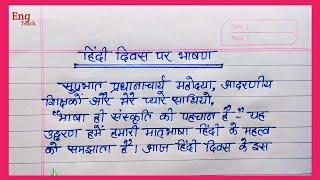 Eng Teach
हिंदी दिवस पर भाषण
सुप्रभात प्रधानाचार्य महोदया, आदरणीय
शिक्षकों और मेरे प्यारे साथियो,
"भाषा ही संस्कृति की पहचान है-" यह
उद्धरण हमें हमारी मातृभाषा हिंदी के महत्व
को समझाता है। आज हिंदी दिवस के इस